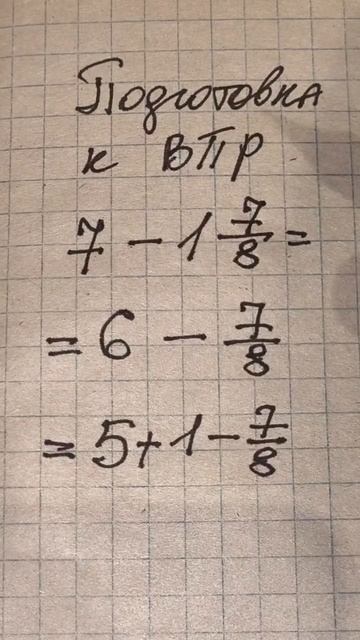 Подготовка
к ВПР
7 - 1 7/8 =
= 6 - 7/8
= 5 + 1 - 7/8